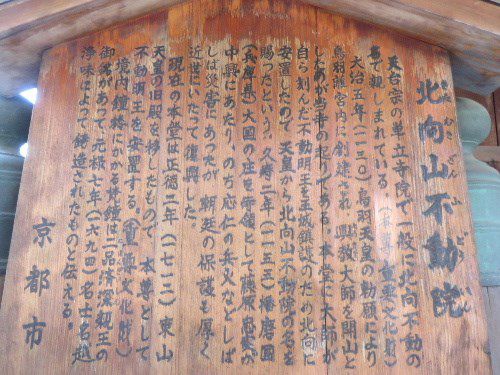 北向山不動院
きたむきざんふどういん
天台宗の単立寺院で一般に北向不動の
名で親しまれている。
大治五年(一一三〇)鳥羽天皇の勅願により
鳥羽離宮内に創建され、興教大師を開山と
したのが当寺の起りである。本堂に大師が
自ら刻んだ不動明王を王城鎮護のため北向に
安置したので天皇から北向山不動院の名を
賜ったという。久寿二年(一一五五)播磨国
(兵庫県)大国の庄を寺領として藤原忠実が
中興にあたり、のち応仁の兵火などしば
しば災害にあったが、朝廷の保護も厚く
近世にたって復興した。
現在の本堂は正徳二年(一七一二)東山
天皇の旧殿を移したもので、本尊として
不動明王を安置する。(重要文化財)
境内鐘楼にかかる梵鐘は二品済深親王の
御銘があって元禄七年(一六九四)名士名越
浄味によって鋳造されたものと伝える。
京都市